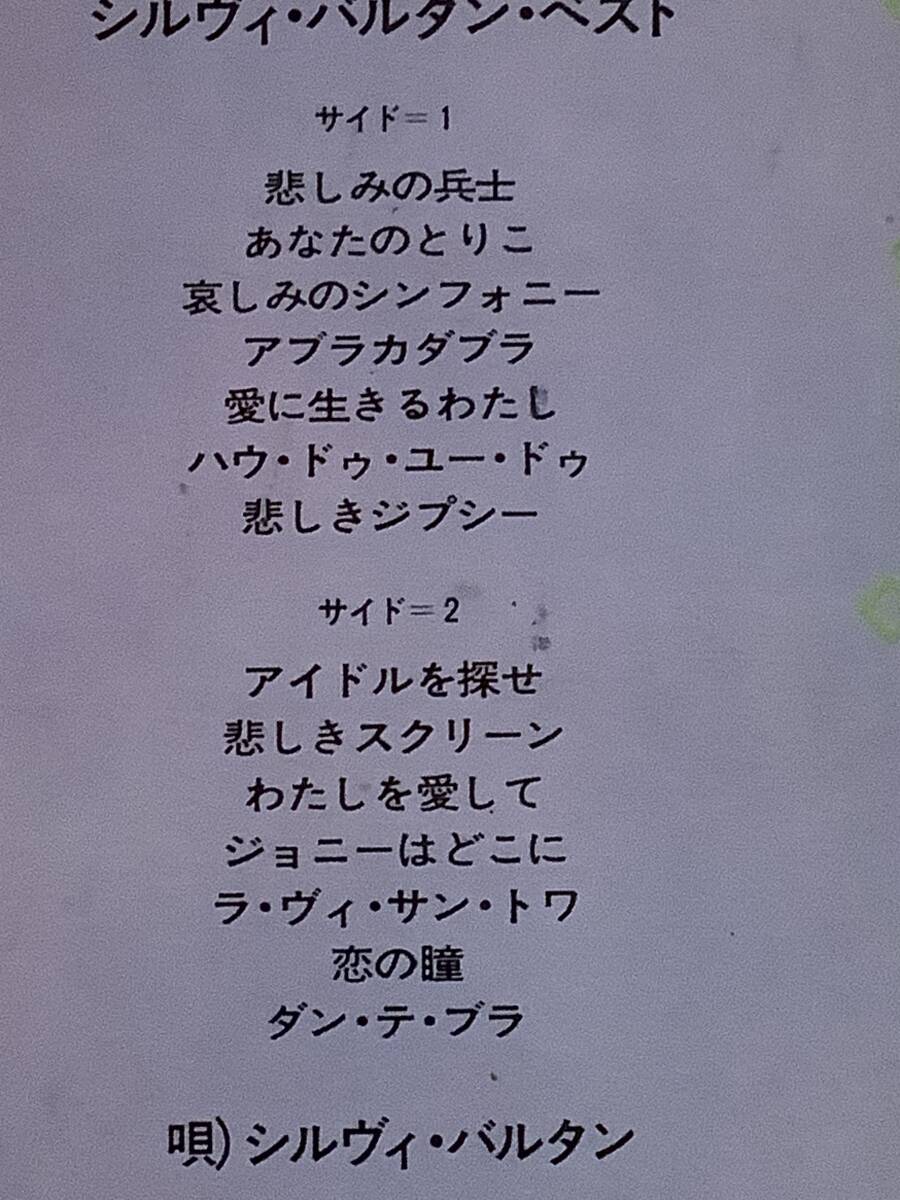 シルヴィ・バルタン・ベスト
サイド=1
悲しみの兵士
あなたのとりこ
哀しみのシンフォニー
アブラカダブラ
愛に生きるわたし
ハウ・ドゥ・ユー・ドゥ
悲しきジプシー
サイド=2
アイドルを探せ
悲しきスクリーン
わたしを愛して
ジョニーはどこに
ラ・ヴィ・サン・トワ
恋の瞳
ダン・テ・ブラ
唄)シルヴィ・バルタン